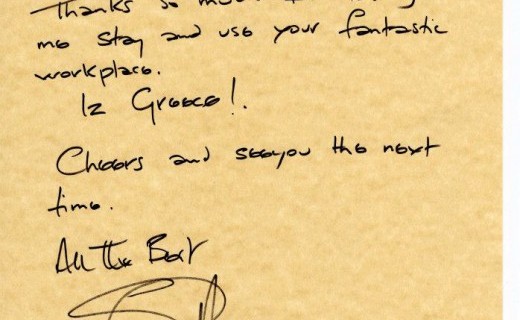 Thanks so much for letting
me stay and use your fantastic
workplace.
Iz Greece!.
Cheers and seeyou the next
time.
All The Best